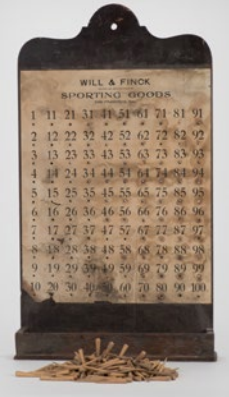 WILL & FINCK
SPORTING GOODS
1 11 21 31 41 51 61 71 81 91
2 12 22 32 42 52 62 72 82 92
3 13 23 33 43 53 63 73 83 93
4 14 24 34 44 54 64 74 84 94
5 15 25 35 45 55 65 75 85 95
6 16 26 36 46 56 66 76 86 96
7 17 27 37 47 57 67 77 87 97
8 18 28 38 48 58 68 78 88 98
9 19 29 39 49 59 69 79 89 99
10 20 30 40 50 60 70 80 90 100